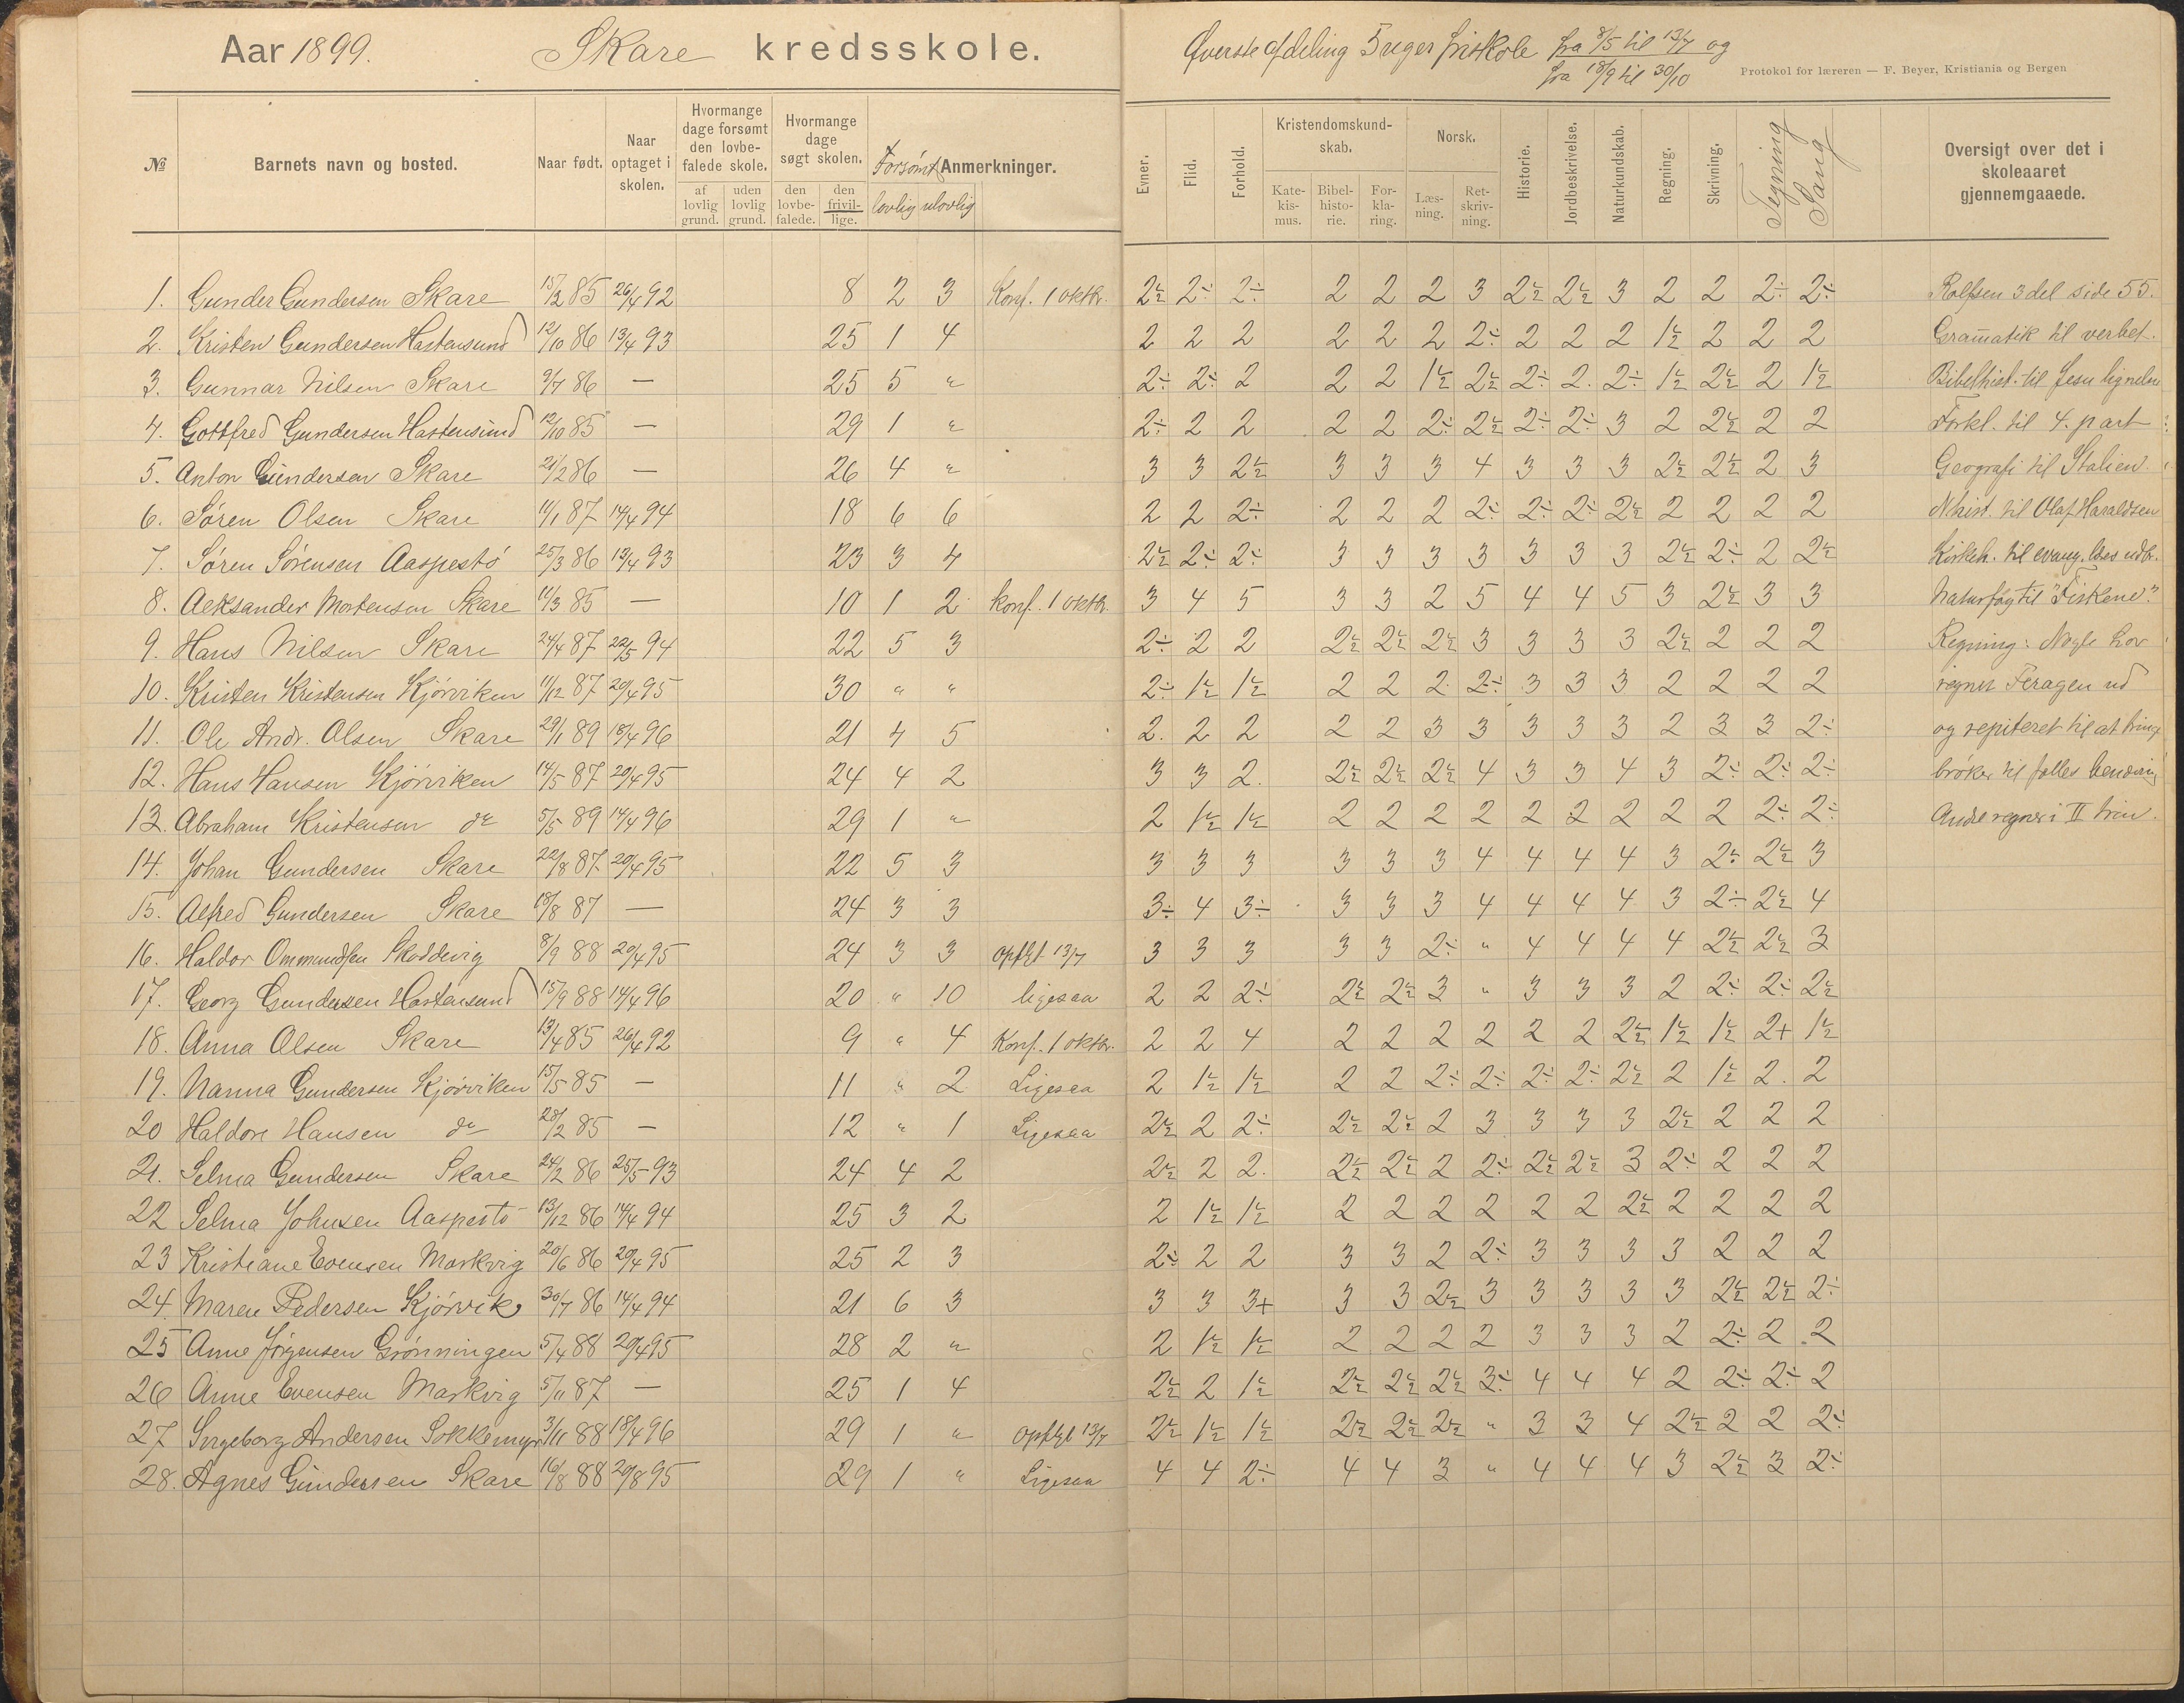 Aar 1899. Skare kredsskole.
Øverste afdeling 5 uger friskole fra 8/5 til 13/7 og
fra 18/9 til 30/10
Protokol for læreren — F. Beyer, Kristiania og Bergen
№ Barnets navn og bosted. Naar født. Naar optaget i skolen. Hvormange dage forsømt den lovbefalede skole. af lovlig grund. uden lovlig grund. Hvormange dage søgt skolen. den lovbefalede. den frivillige. Forsømt lovlig ulovlig Anmerkninger.
Evner. Flid. Forhold. Kristendomskundskab. Katekismus. Bibelhistorie. Forklaring. Norsk. Læsning. Retskrivning. Historie. Jordbeskrivelse. Naturkundskab. Regning. Skrivning. Tegning Sang Oversigt over det i skoleaaret gjennemgaaede.
1. Gunder Gundersen Skare 15/2 85 26/4 92 8 2 3 Konf. 1 oktbr. 2½ 2÷ 2÷ 2 2 2 3 2½ 2½ 3 2 2 2÷ 2÷ Rolfsen 3 del side 55.
2. Kristen Gundersen Hastensund 12/10 86 13/4 93 25 1 4 2 2 2 2 2 2 2÷ 2 2 2 1½ 2 2 2 Gramatik til verbet.
3. Gunnar Nilsen Skare 9/7 86 — 25 5 " 2÷ 2÷ 2 2 2 1½ 2½ 2÷ 2. 2÷ 1½ 2½ 2 1½ Bibelhist. til Jesu lignelse
4. Gottfred Gundersen Hastensund 12/10 85 — 29 1 " 2÷ 2 2 2 2 2÷ 2½ 2÷ 2÷ 3 2 2½ 2 2 Forkl. til 4. part
5. Anton Gundersen Skare 21/2 86 — 26 4 " 3 3 2½ 3 3 3 4 3 3 3 2½ 2½ 2 3 Geografi til Italien.
6. Søren Olsen Skare 11/1 87 14/4 94 18 6 6 2 2 2÷ 2 2 2 2÷ 2÷ 2÷ 2½ 2 2 2 2 Nhist. til Olaf Haraldsen
7. Søren Sørensen Aaspestø 25/3 86 13/4 93 23 3 4 2½ 2÷ 2÷ 3 3 3 3 3 3 3 2½ 2÷ 2 2½ Kirkeh. til evang. læs udb.
8. Aeksander Mortensen Skare 11/3 85 — 10 1 2 Konf. 1 oktbr. 3 4 5 3 3 2 5 4 4 5 3 2½ 3 3 Naturfag til "Fiskene"
9. Hans Nilsen Skare 24/4 87 22/5 94 22 5 3 2÷ 2 2 2½ 2½ 2½ 3 3 3 3 2½ 2 2 2 Regning: Nogle har
10. Kristen Kristensen Kjørviken 11/12 87 20/4 95 30 " " 2÷ 1½ 1½ 2 2 2 2÷ 3 3 3 2 2 2 2 regnet Feragen ud
11. Ole Andr. Olsen Skare 29/1 89 18/4 96 21 4 5 2. 2 2 2 2 3 3 3 3 3 2 3 3 2÷ og repiteret til at bring
12. Hans Hansen Kjørviken 14/5 87 20/4 95 24 4 2 3 3 2. 2½ 2½ 2½ 4 3 3 4 3 2÷ 2÷ 2÷ brøker til fælles benævning
13. Abraham Kristensen do 5/5 89 14/4 96 29 1 " 2 1½ 1½ 2 2 2 2 2 2 2 2 2 2÷ 2÷ Andre regner i II trin.
14. Johan Gundersen Skare 22/8 87 20/4 95 22 5 3 3 3 3 3 3 3 4 4 4 4 3 2÷ 2½ 3
15. Alfred Gundersen Skare 18/8 87 — 24 3 3 3÷ 4 3÷ 3 3 3 4 4 4 4 3 2÷ 2½ 4
16. Haldor Ommundsen Skoddevig 8/9 88 20/4 95 24 3 3 opflyt 13/7 3 3 3 3 3 2÷ " 4 4 4 4 2½ 2½ 3
17. Georg Gundersen Hastensund 15/9 88 14/4 96 20 " 10 ligesaa 2 2 2÷ 2½ 2½ 3 " 3 3 3 2 2÷ 2÷ 2½
18. Anna Olsen Skare 13/4 85 26/4 92 9 " 4 Konf. 1 oktbr. 2 2 4 2 2 2 2 2 2 2½ 1½ 1½ 2+ 1½
19. Nanna Gundersen Kjørviken 15/5 85 — 11 " 2 Ligesaa 2 1½ 1½ 2 2 2÷ 2÷ 2÷ 2÷ 2½ 2 1½ 2. 2
20 Haldore Hansen do 28/2 85 — 12 " 1 Ligesaa 2½ 2 2÷ 2½ 2½ 2 3 3 3 3 2½ 2 2 2
21. Selma Gundersen Skare 24/2 86 25/5 93 24 4 2 2½ 2 2. 2½ 2½ 2 2÷ 2½ 2½ 3 2÷ 2 2 2
22 Selma Johnsen Aaspestø 13/12 86 14/4 94 25 3 2 2 1½ 1½ 2 2 2 2 2 2 2½ 2 2 2 2
23 Kristiane Evensen Markvig 20/6 86 20/4 95 25 2 3 2÷ 2 2 3 3 2 2÷ 3 3 3 3 2 2 2
24. Maren Pedersen Kjørvik 30/7 86 14/4 94 21 6 3 3 3 3+ 3 3 2½ 3 3 3 3 3 2½ 2½ 2÷
25 Anne Jørgensen Grønningen 5/4 88 20/4 95 28 2 " 2 1½ 1½ 2 2 2 2 3 3 3 2 2÷ 2 2
26 Anne Evensen Markvig 5/11 87 — 25 1 4 2½ 2 1½ 2½ 2½ 2½ 3÷ 4 4 4 2 2÷ 2÷ 2
27 Ingeborg Andersen Sokkemyr 3/11 88 18/4 96 29 1 " opflyt 13/7 2½ 1½ 1½ 2½ 2½ 2½ " 3 3 4 2½ 2 2 2÷
28. Agnes Gundersen Skare 16/8 88 20/8 95 29 1 " Ligesaa 4 4 2÷ 4 4 3 " 4 4 4 3 2½ 3 2÷